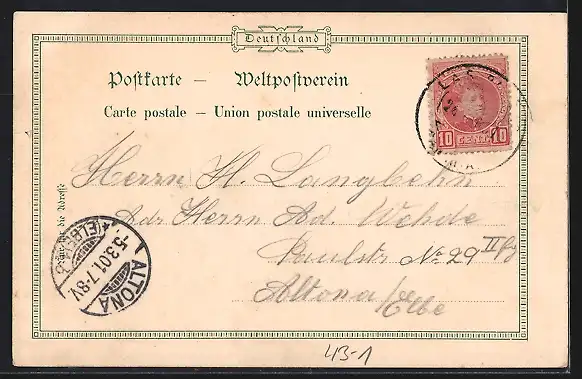 Deutschland
Postkarte — Weltpostverein
Carte postale — Union postale universelle
LAS
10 CENT. 10
Herrn H. Langbehn
Adr. Herrn Ad. Wehde
Paulstr No 29 II
Altona/Elbe
Nur für die Adresse
*(ELBE)*
-5.3.01.7-8V
ALTONA
43-1